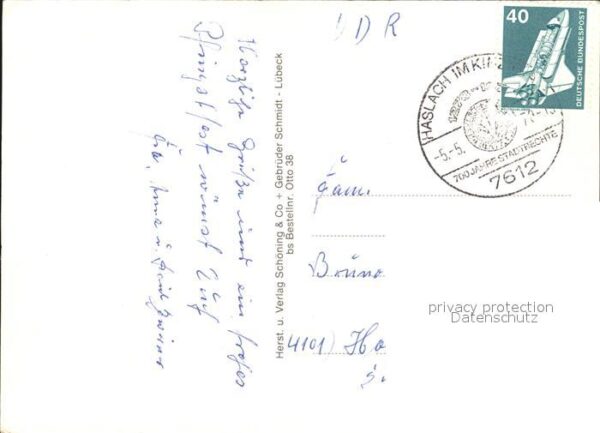 Herzliche Grüße und ein frohes
Pfingstfest wünscht Euch
Herst. u. Verlag Schöning & Co + Gebrüder Schmidt - Lübeck
bs Bestellnr. Otto 38
DDR
40
DEUTSCHE BUNDESPOST
HASLACH IM KINZ
-5.-5.
700 JAHRE STADTRECHTE
7612
Fam.
Bruno
4101) Ho
S.
privacy protection
Datenschutz